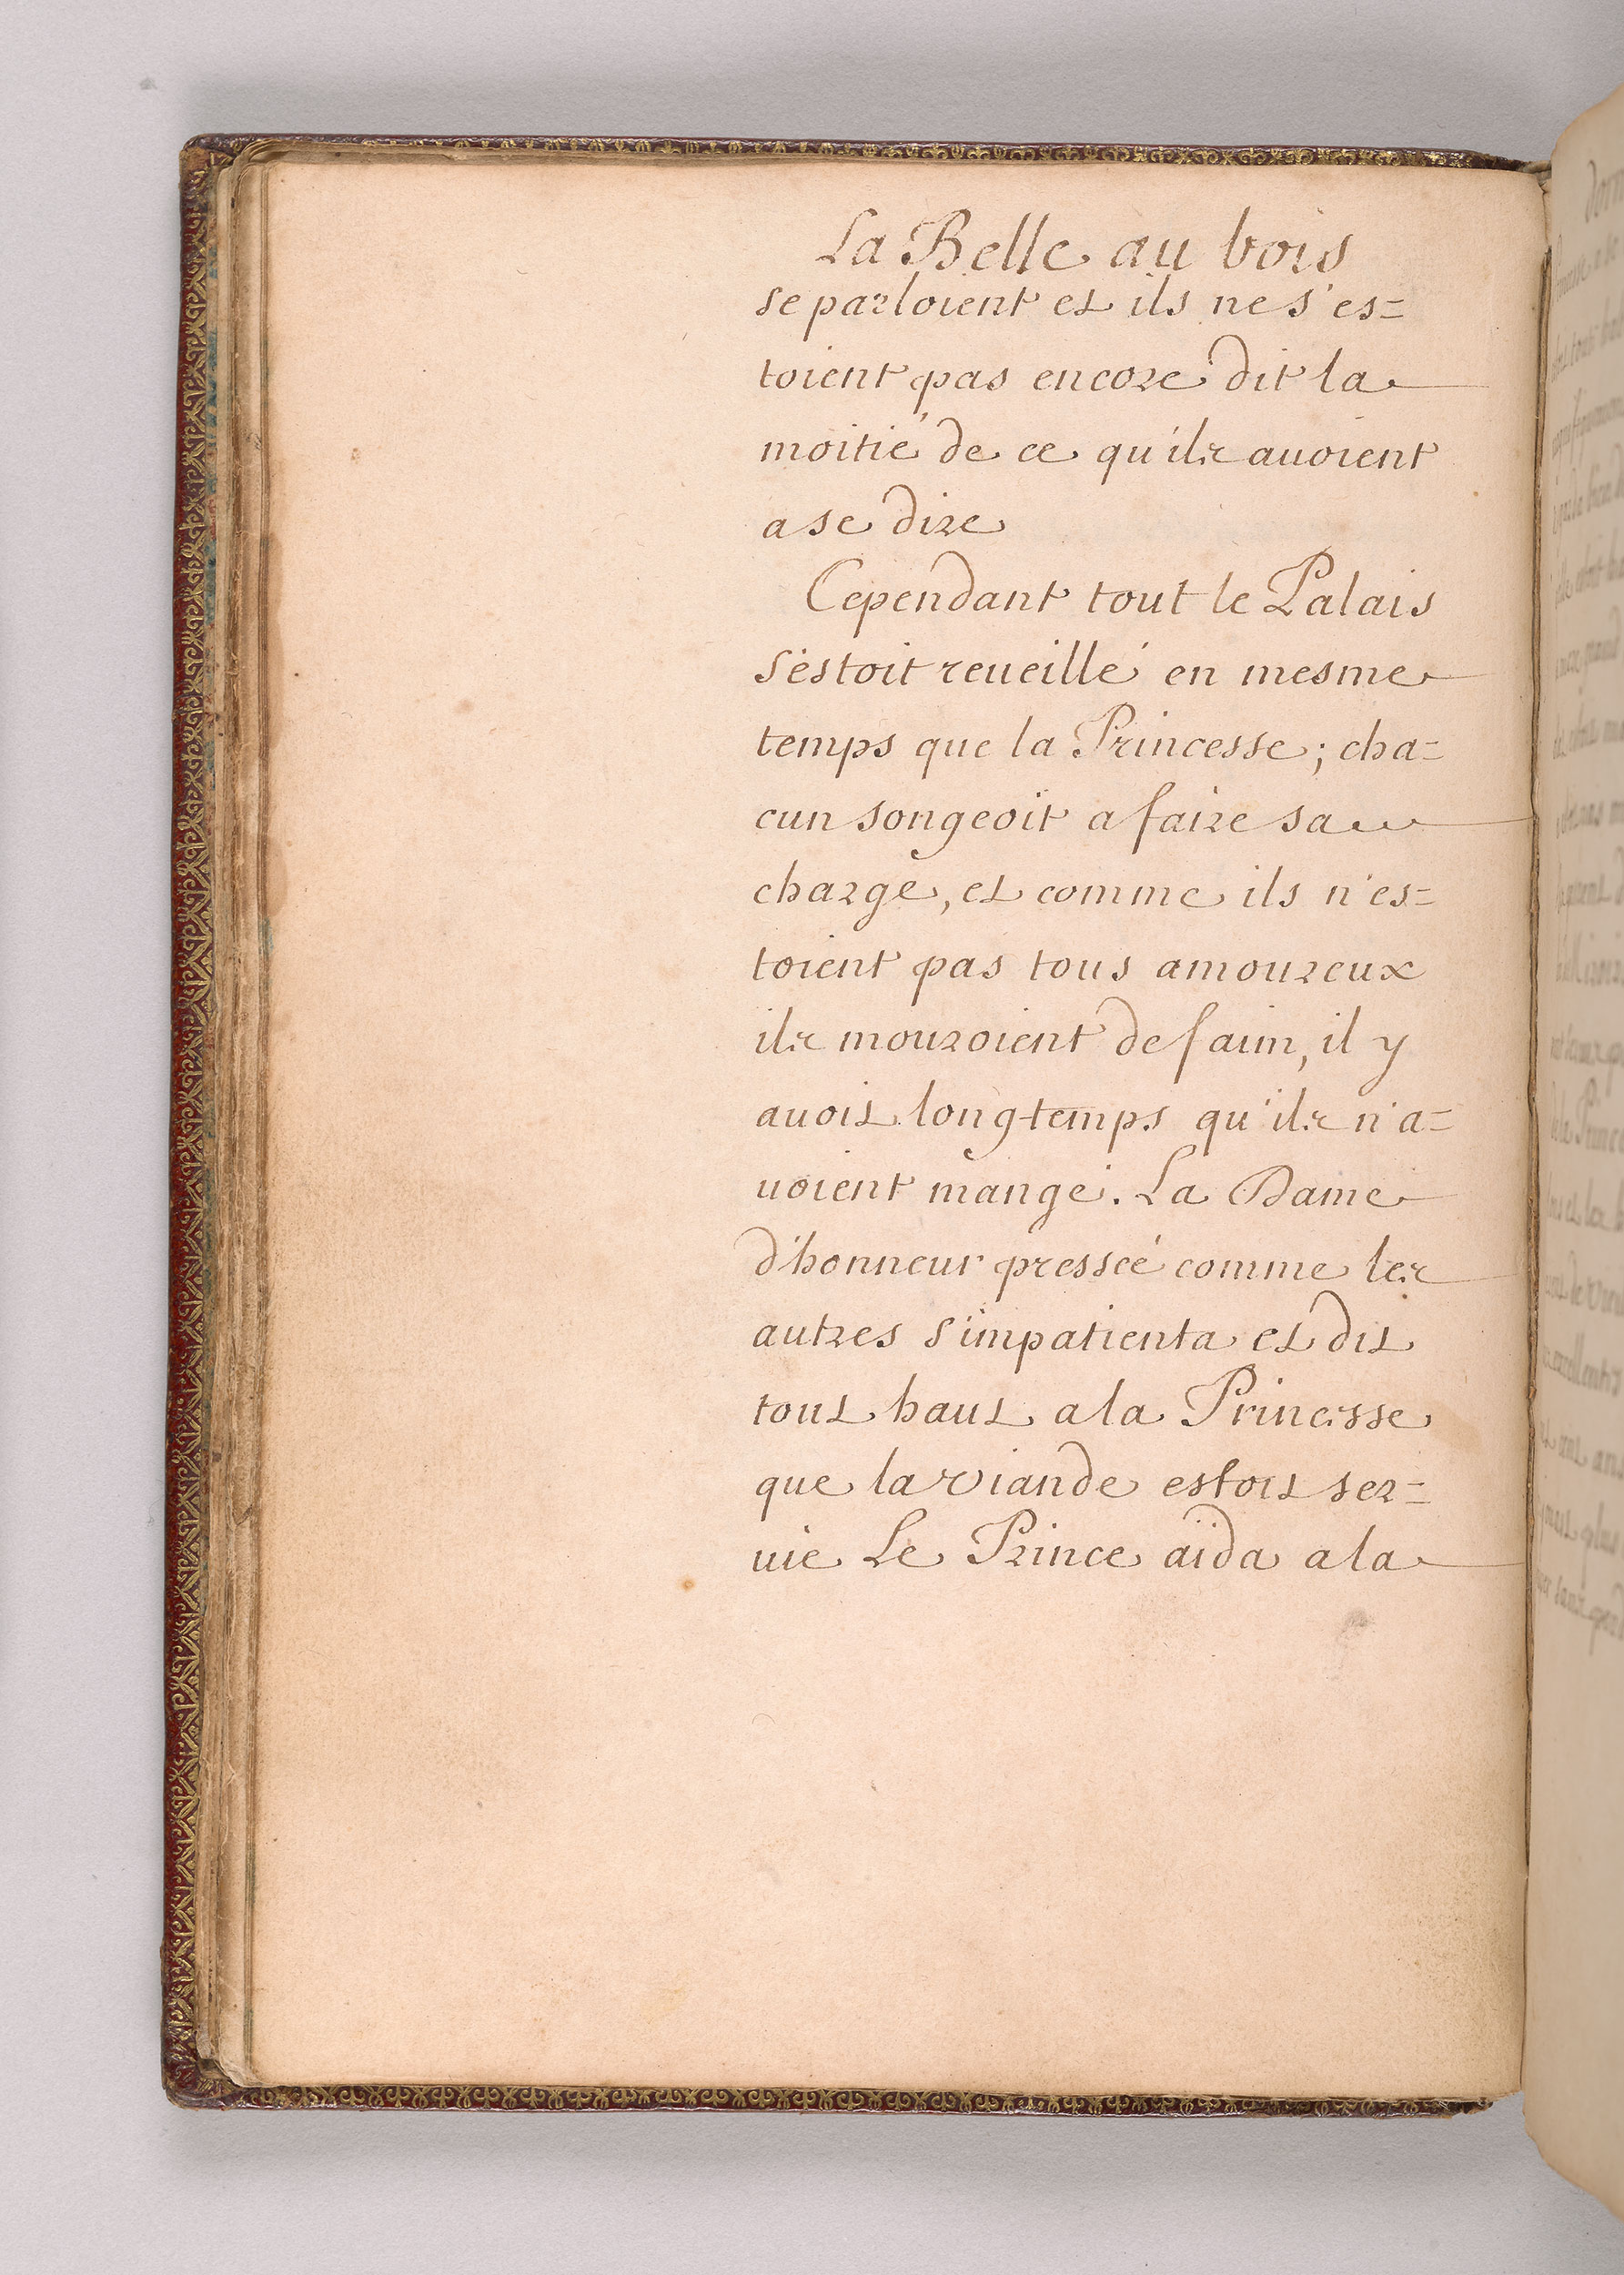 La Belle au bois
se parloient et ils ne s'es=
toient pas encore dit la
moitié de ce qu'ils auoient
a se dire
Cependant tout le Palais
s'estoit reueillé en mesme
temps que la Princesse; cha=
cun songeoit a faire sa
charge, et comme ils n'es=
toient pas tous amoureux
ils mouroient de faim, il y
auoit longtemps qu'ils n'a=
uoient mangé. La Dame
d'honneur presseé comme les
autres s'impatienta et dit
tout haut a la Princesse
que la viande estoit ser=
uie Le Prince aida a la